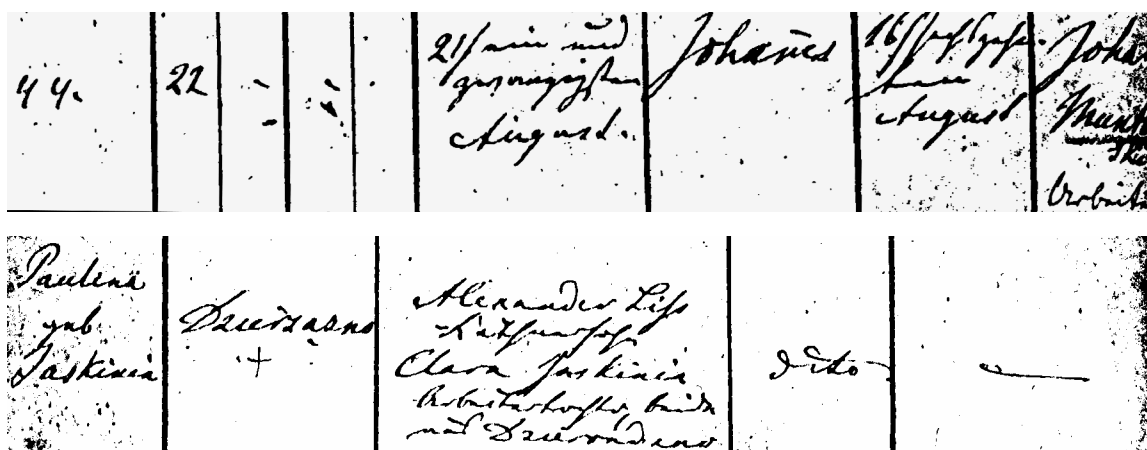 44. 22 - -
21/ ein und
zwanzigsten
August.
Johannes
16/ sechszehn-
ten
August
Joha
Arbeite
Paulina
geb
Jaskinia
Dzierzazno
+
Alexander Liss
Käthnersohn
Clara Jaskinia
Arbeitertochter, beide
aus Dzierondzno
dito
—